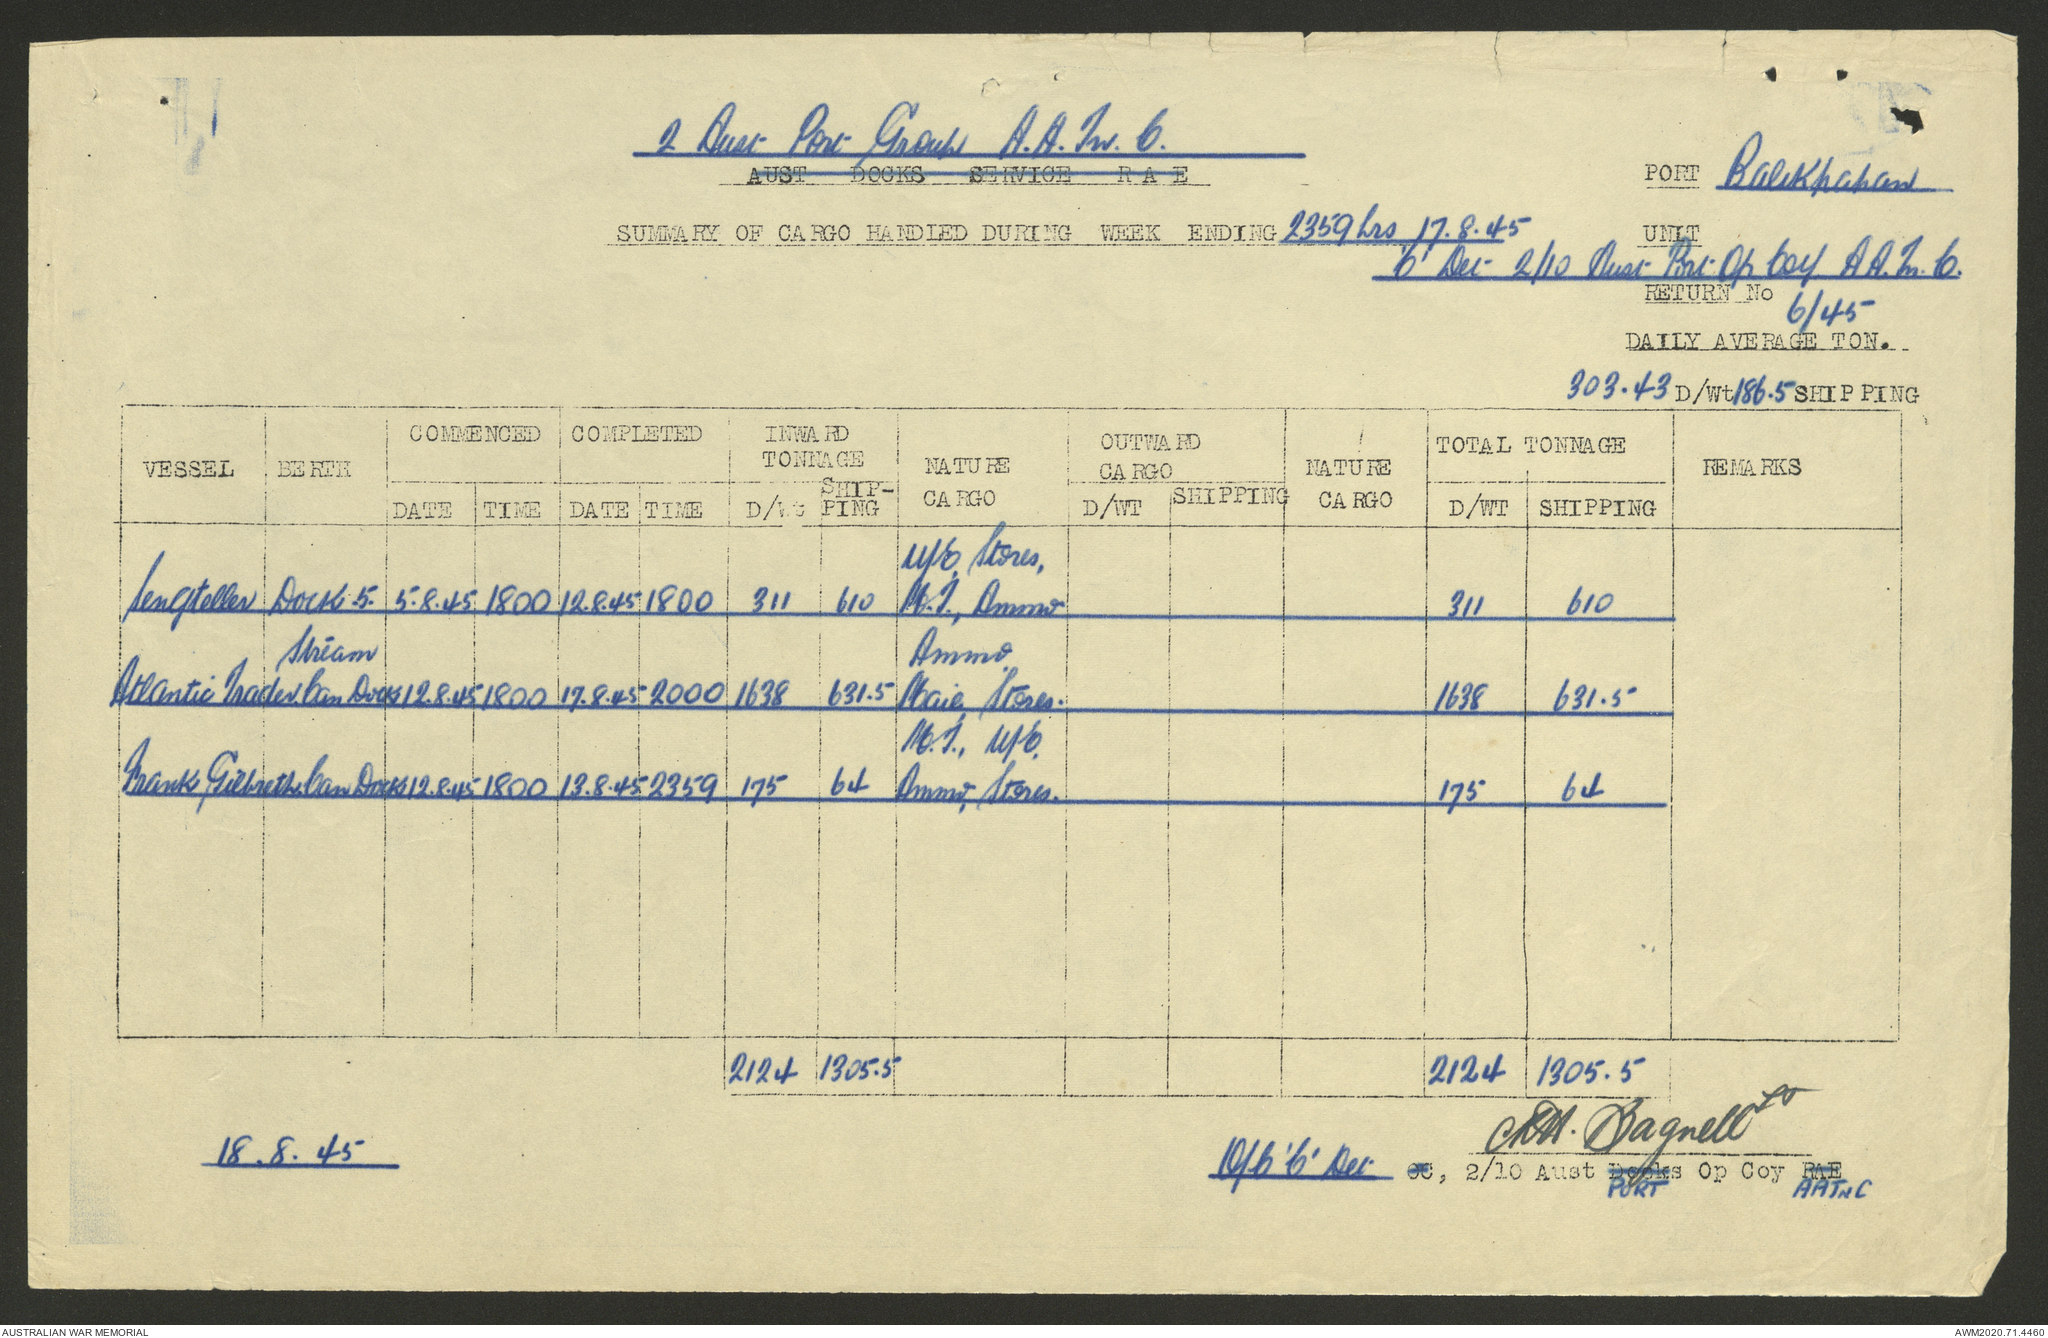 2 Aust Port Group A.A.Tn.C.
AUST DOCKS SERVICE R A E
PORT Balikpapan
SUMMARY OF CARGO HANDLED DURING WEEK ENDING 2359hrs 17.8.45
UNIT
'C' Det 2/10 Aust Port Op Coy A.A.Tn.C.
RETURN No 6/45
DAILY AVERAGE TON.
303.43 D/Wt 186.5 SHIPPING
VESSEL BERTH COMMENCED COMPLETED INWARD TONNAGE NATURE CARGO OUTWARD CARGO NATURE CARGO TOTAL TONNAGE REMARKS
DATE TIME DATE TIME D/Wt SHIP-PING D/WT SHIPPING D/WT SHIPPING
U/C, Stores,
Sengteller Dock 5. 5.8.45 1800 12.8.45 1800 311 610 M.T., Ammo 311 610
Stream Ammo,
Atlantic Trader Can Dock 12.8.45 1800 17.8.45 2000 1638 631.5 Stores. 1638 631.5
M.T., U/C,
Frank Gilbreth Can Dock 12.8.45 1800 13.8.45 2359 175 64 Ammo, Stores. 175 64
2124 1305.5 2124 1305.5
Bagnell Lt
18.8.45
O/C 'C' Det OC, 2/10 Aust Docks Op Coy RAE
PORT AATnC
AUSTRALIAN WAR MEMORIAL
AWM2020.71.4460